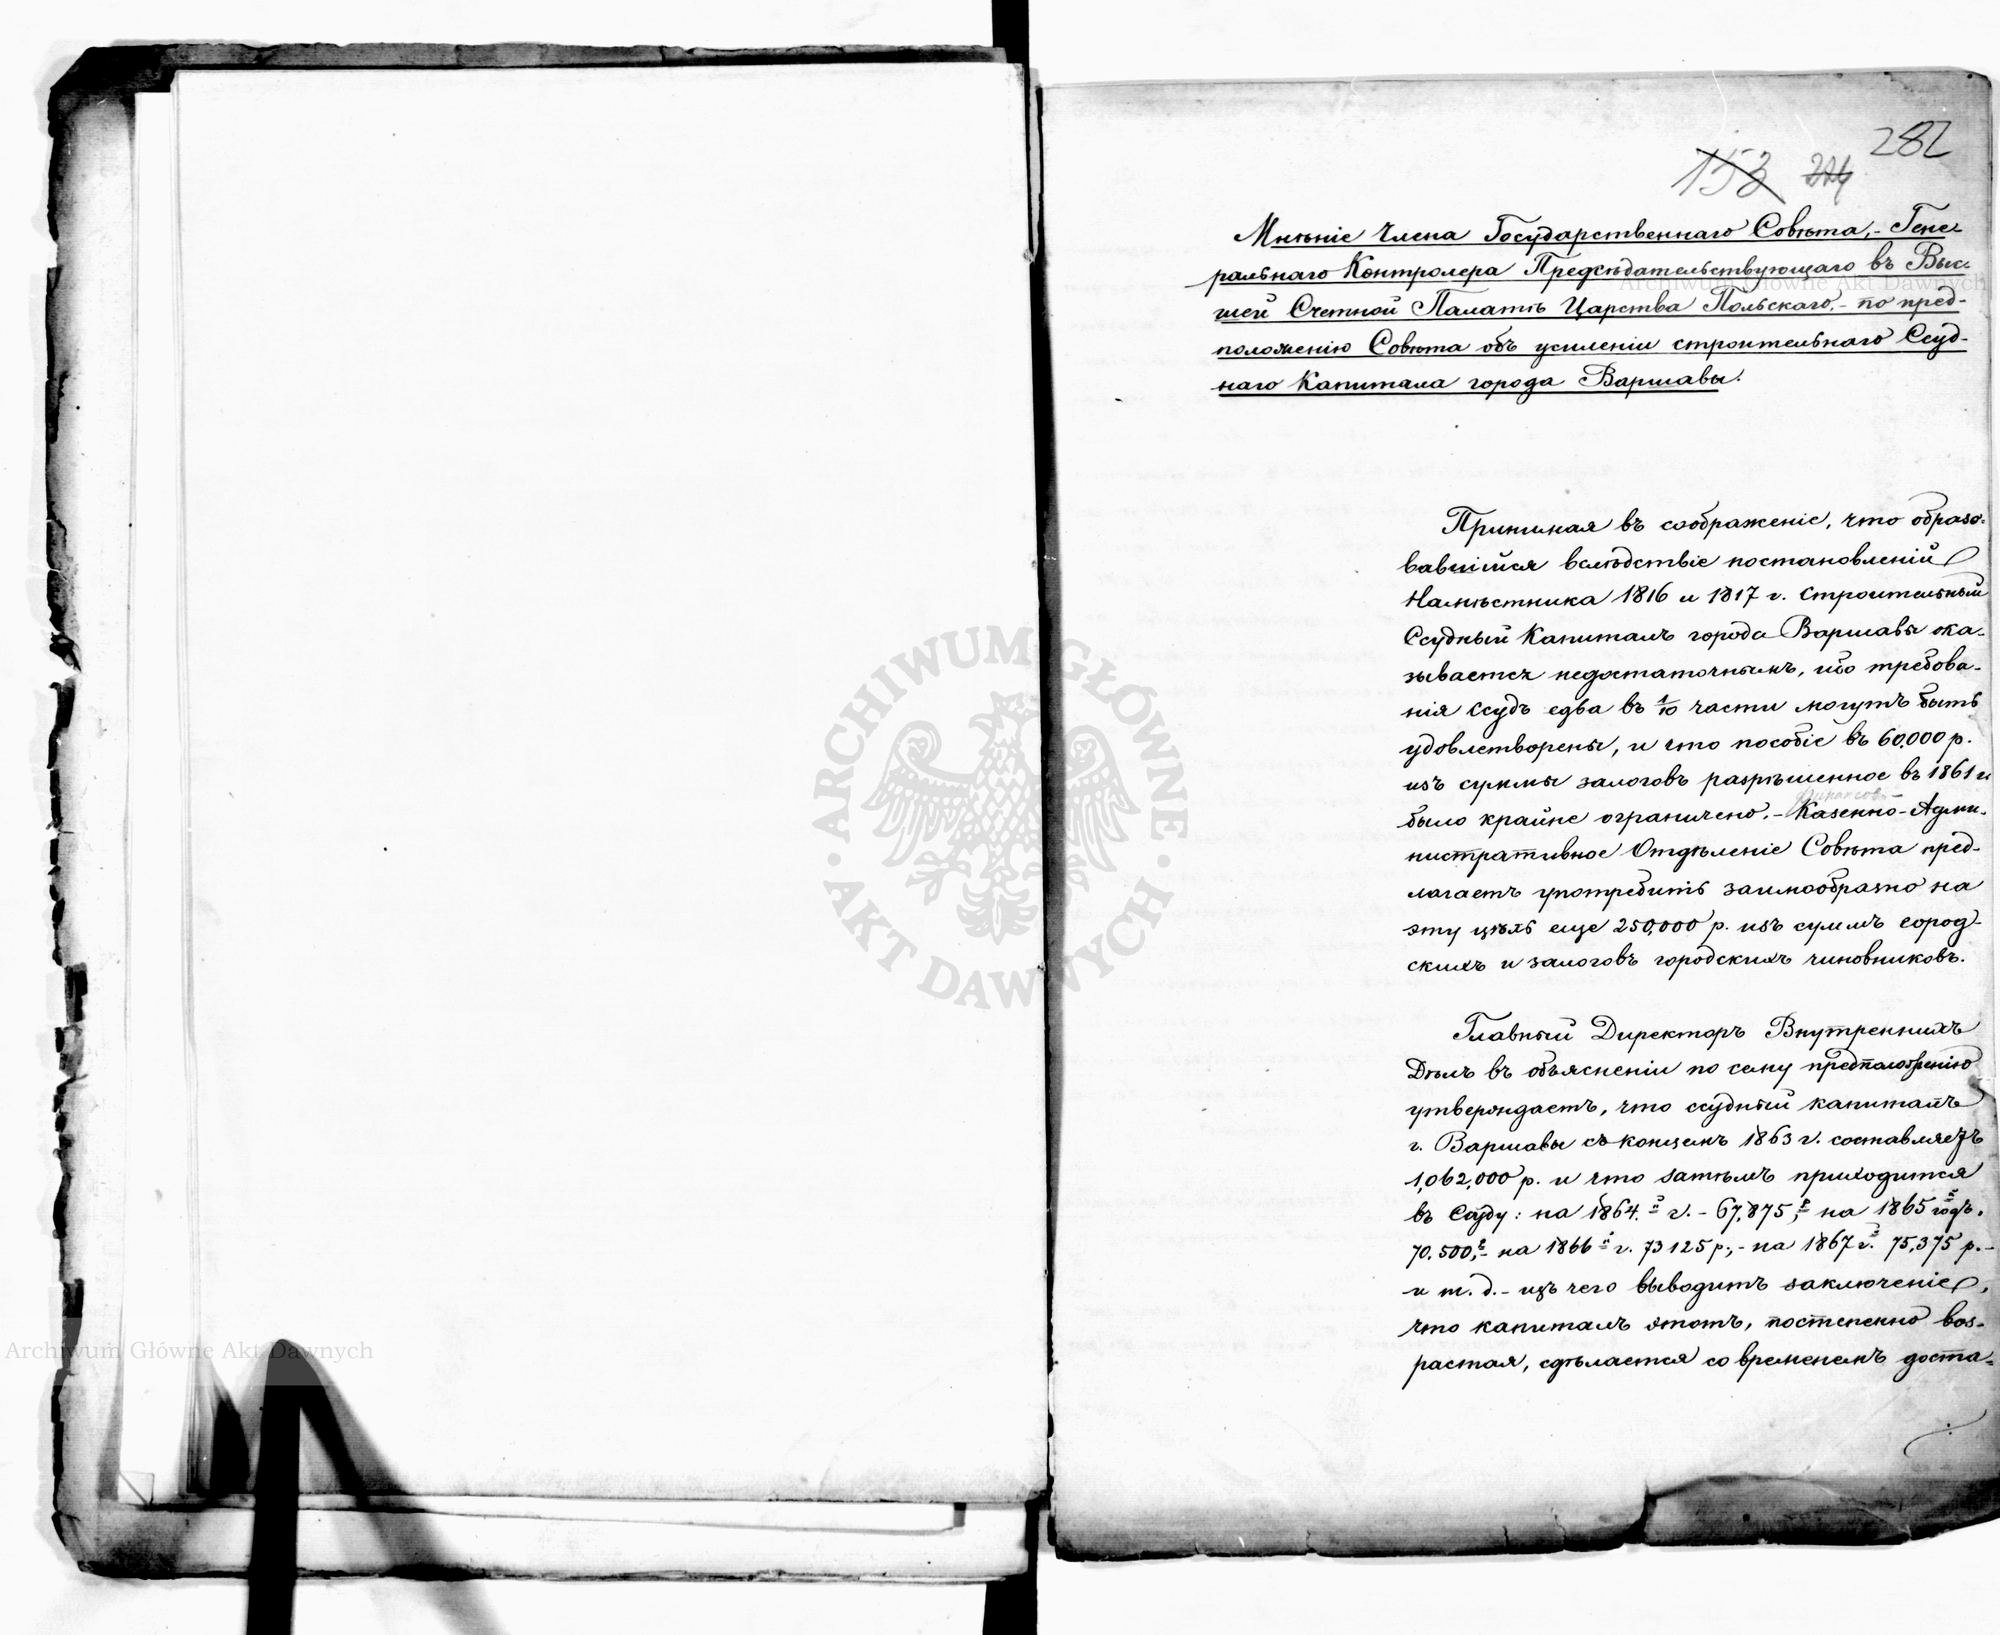 282
153 224
Мнѣніе Члена Государственнаго Совѣта,- Гене-
ральнаго Контролера Предсѣдательствующаго въ Выс-
шей Счетной Палатѣ Царства Польскаго,- по пред-
положенію Совѣта объ усиленіи строительнаго Ссуд-
наго Капитала города Варшавы.
Принимая въ соображеніе, что образо-
вавшійся вслѣдствіе постановленій
Намѣстника 1816 и 1817 г. Строительный
Ссудный Капиталъ города Варшавы ока-
зывается недостаточнымъ, ибо требова-
нія ссудъ едва въ 1/10 части могутъ быть
удовлетворены, и что пособіе въ 60,000 р.
изъ суммы залоговъ разрѣшенное въ 1861 г
Финансово
было крайне ограничено,- Казенно-Адми-
нистративное Отдѣленіе Совѣта пред-
лагаетъ употребить заимообразно на
эту цѣль еще 250,000 р. изъ суммъ город-
скихъ и залоговъ городскихъ чиновниковъ.
Главный Директоръ Внутреннихъ
Дѣлъ въ объясненіи по сему предположенію
утверждаетъ, что ссудный капиталъ
г. Варшавы съ концемъ 1863 г. составляетъ
1,062,000 р. и что затѣмъ приходится
въ ссуду: на 1864.й г. - 67,875,р на 1865й годъ.
70.500,р- на 1866й г. 73125 р;,- на 1867й г. 75,375 р.-
и т. д.- изъ чего выводитъ заключеніе,
что капиталъ этотъ, постепенно воз-
растая, сдѣлается со временемъ доста-
Archiwum Główne Akt Dawnych
Archiwum Główne Akt Dawnych
ARCHIWUM GŁÓWNE
AKT DAWNYCH